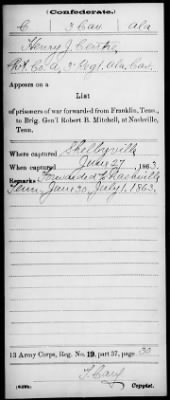 (Confederate.)
C 3 Cav. Ala
Henry J.
Pvt Co. A, 3 Regt. Ala. Cav.
Appears on a
List
of prisoners of war forwarded from Franklin, Tenn.,
to Brig. Gen'l Robert B. Mitchell, at Nashville,
Tenn.
Where captured Shelbyville
When captured June 27, 1863.
Remarks Forwarded to Nashville
Tenn. June 30, July 1, 1863.
13 Army Corps, Reg. No. 19, part 37, page 30
Copyist.